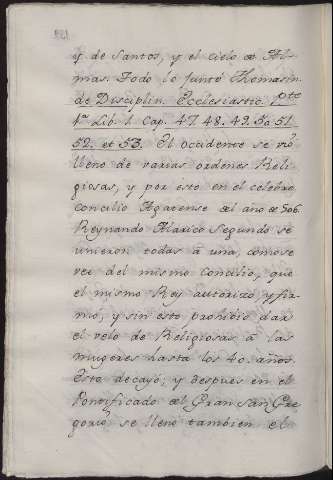 y de Santos, y el cielo de Al-
mas. Todo lo juntó Thomasin.
de Disciplin. Ecclesiastic. pte
1.ª Lib. 1. Cap. 47. 48. 49. 50. 51.
52. et 53. El occidente se vio
lleno de varias ordenes Reli-
giosas, y por esto en el celebre
Concilio Agatense del año de 506.
Reynando Alarico Segundo se
unieron todas á una, como se
vee del mismo Concilio, que
el mismo Rey autorizó y fir-
mó, y sin esto prohibió dar
el velo de Religiosas á las
mugeres hasta los 40. años.
Esto decayó; y despues en el
Pontificado del Gran San Gre-
gorio se llenó tambien el